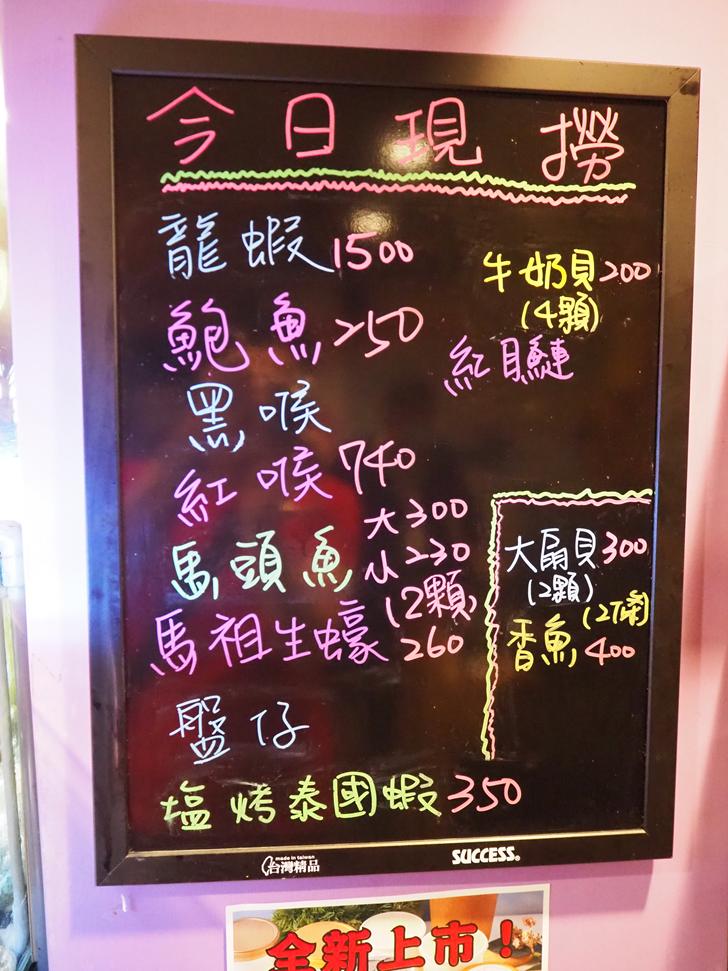 今日現撈
龍蝦1500
鮑魚250
黑喉
紅喉740
馬頭魚 大300
小230
馬祖生蠔 (2顆)
260
盤仔
塩烤泰國蝦350
牛奶貝200
(4顆)
紅目鰱
大扇貝300
(2顆)
香魚 (2條)
400
made in taiwan
台灣精品
SUCCESS®
全新上市！